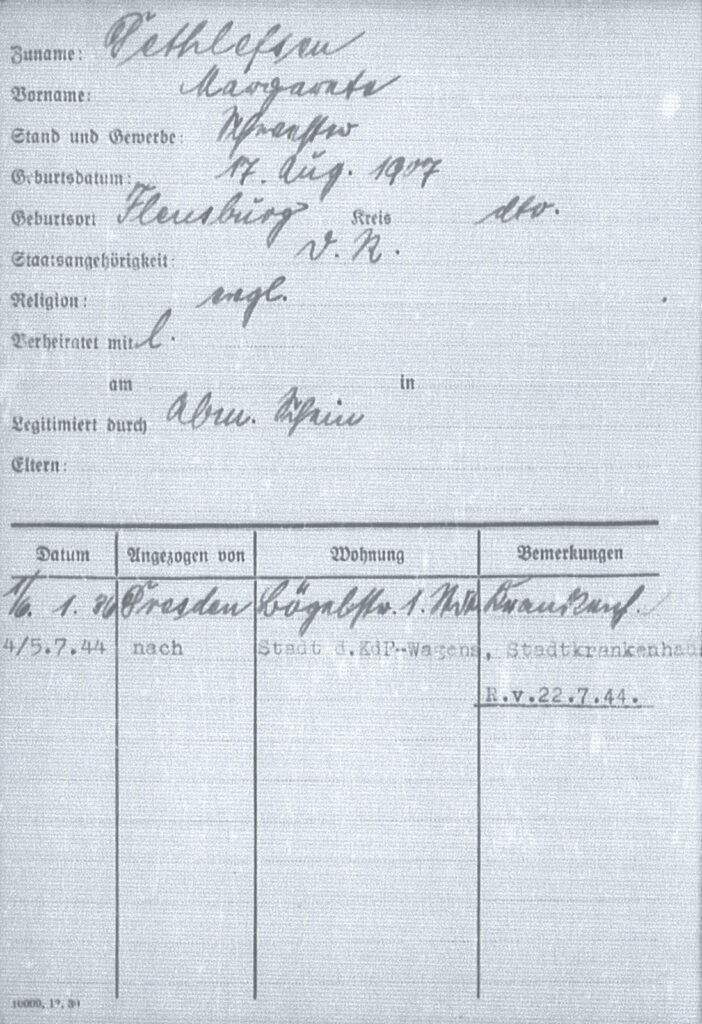 Zuname: Dethlefsen
Vorname: Margarete
Stand und Gewerbe: Schwester
Geburtsdatum: 17. Aug. 1907
Geburtsort Flensburg Kreis dto.
Staatsangehörigkeit: D. R.
Religion: evgl.
Verheiratet mit l.
am in
Legitimiert durch Abm. Schein
Eltern:
Datum Angezogen von Wohnung Bemerkungen
1. 36 Dresden 1.
4/5.7.44 nach Stadt d.KdF-Wagens, Stadtkrankenhau
R.v.22.7.44.